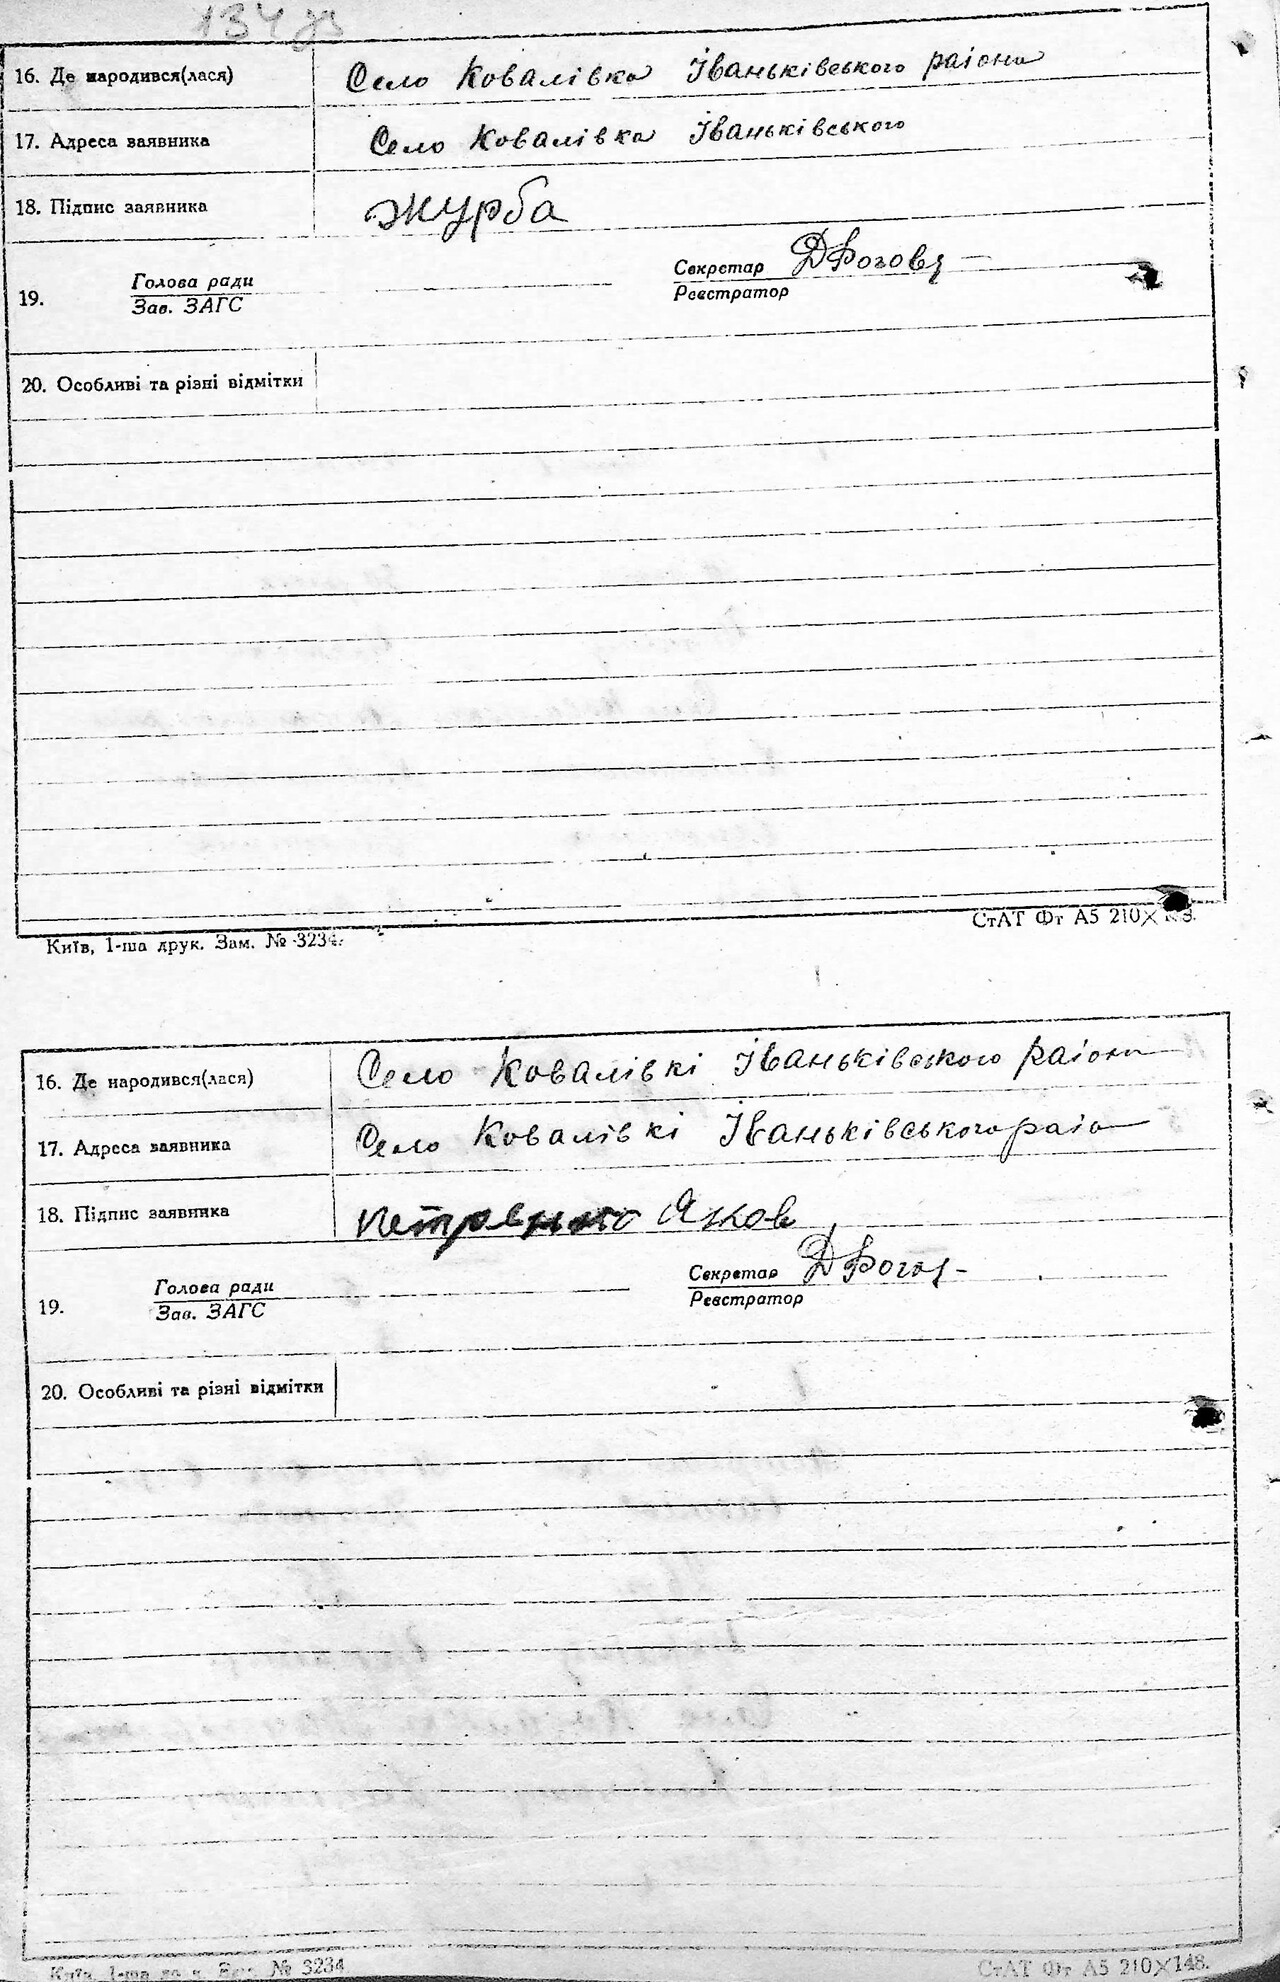 134 зв
16. Де народився(лася) Село Ковалівка Іваньківського раіона
17. Адреса заявника Село Ковалівка Іваньківського
18. Підпис заявника Журба
19. Голова ради Секретар
Зав. ЗАГС Реєстратор
20. Особливі та різні відмітки
Київ, 1-ша друк. Зам. № 3234.
СтАТ Фт А5 210×
16. Де народився(лася) Село Ковалівкі Іваньківского раіона
17. Адреса заявника Село Ковалівкі Іваньківського раіо
18. Підпис заявника Яков
19. Голова ради Секретар
Зав. ЗАГС Реєстратор
20. Особливі та різні відмітки
Київ, 1-ша № 3234
СтАТ Фт А5 210×148.